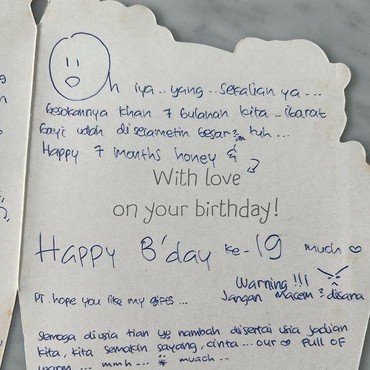 Oh iya.. yang.. sekalian ya...
besokannya khan 7 bulanan kita.. ibarat
bayi udah diselametin besar2an tuh...
Happy 7 months honey &
With love
on your birthday!
Happy B'day ke-19 much ♡
Warning !!!
PS. hope you like my gifts... Jangan macem2 disana
Semoga diusia tian yg nambah disertai usia jadian
kita, kita semakin sayang, cinta... our ♡ full of
... mmh... muach..